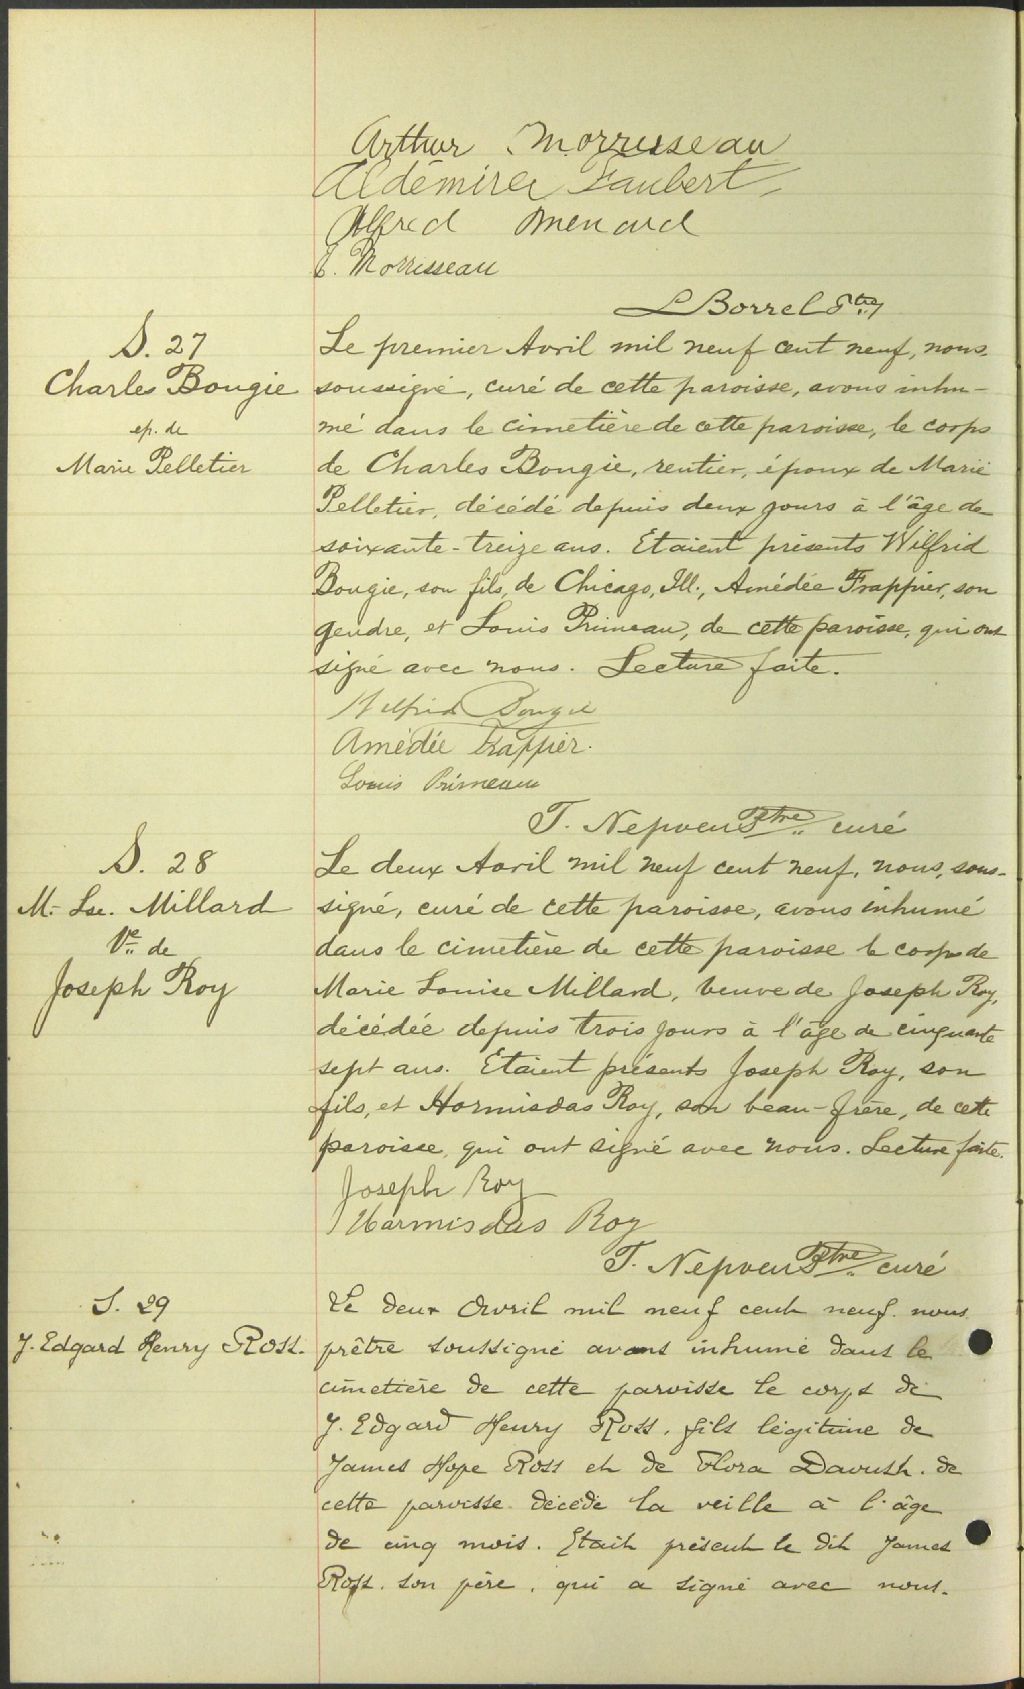 Arthur Morrisseau
Aldémire Faubert
Alfred Menard
E. Morrisseau
L Borrel Ptre
S. 27
Charles Bougie
ep. de
Marie Pelletier
Le premier Avril mil neuf cent neuf, nous
soussigné, curé de cette paroisse, avons inhu-
mé dans le cimetière de cette paroisse, le corps
de Charles Bougie, rentier, époux de Marie
Pelletier, décédé depuis deux jours à l'âge de
soixante-treize ans. Etaient présents Wilfrid
Bougie, son fils, de Chicago, Ill., Amédée Frappier, son
gendre, et Louis Primeau, de cette paroisse, qui ont
signé avec nous. Lecture faite.
Wilfrid Bougie
Amédée Frappier.
Louis Primeau
T. Nepveu Ptre curé
S. 28
M. Lse. Millard
Ve de
Joseph Roy
Le deux Avril mil neuf cent neuf, nous, sous-
signé, curé de cette paroisse, avons inhumé
dans le cimetière de cette paroisse le corps de
Marie Louise Millard, veuve de Joseph Roy,
décédée depuis trois jours à l'âge de cinquante
sept ans. Etaient présents Joseph Roy, son
fils, et Hormisdas Roy, son beau-frère, de cette
paroisse, qui ont signé avec nous. Lecture faite.
Joseph Roy
Harmisdas Roy
T. Nepveu Ptre curé
S. 29
J. Edgard Henry Ross.
Le deux Avril mil neuf cent neuf. nous
prêtre soussigné avons inhumé dans le
cimetière de cette paroisse le corps de
J. Edgard Henry Ross. fils légitime de
James Hope Ross et de Flora Daoust. de
cette paroisse. décédé la veille à l'âge
de cinq mois. Etait présent le dit James
Ross. son père. qui a signé avec nous.